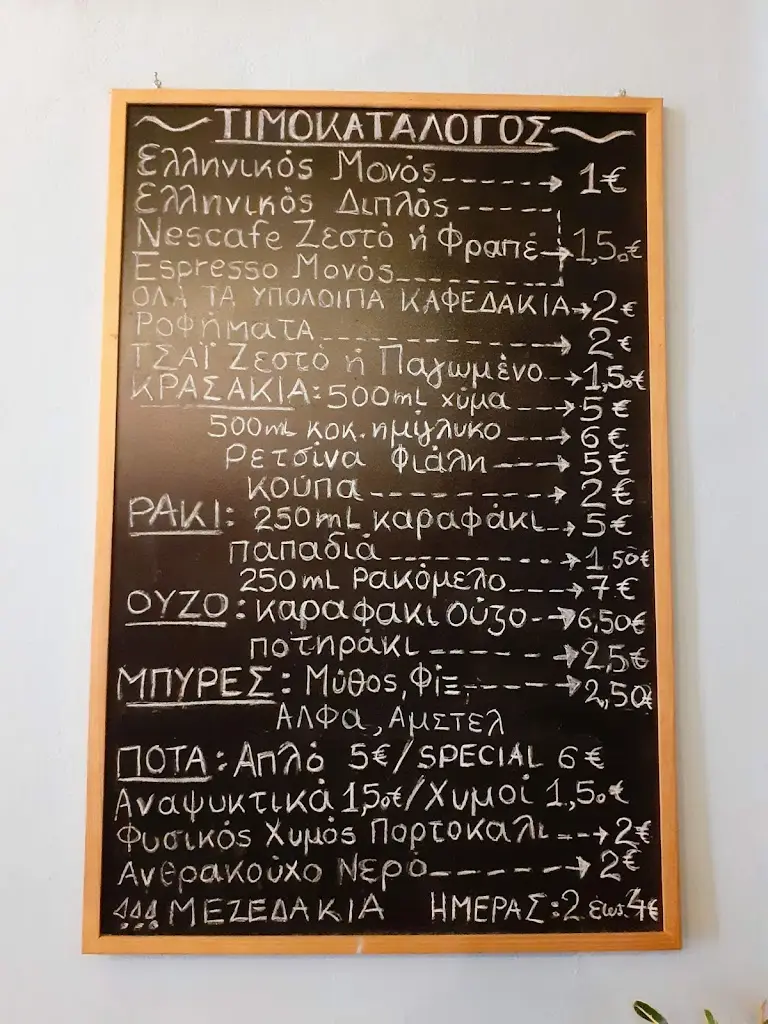 ΤΙΜΟΚΑΤΑΛΟΓΟΣ
Ελληνικός Μονός 1€
Ελληνικός Διπλός
Nescafe Ζεστό ή Φραπέ 1,50€
Espresso Μονός
ΟΛΑ ΤΑ ΥΠΟΛΟΙΠΑ ΚΑΦΕΔΑΚΙΑ 2€
Ροφήματα 2€
ΤΣΑΪ Ζεστό ή Παγωμένο 1,50€
ΚΡΑΣΑΚΙΑ: 500mL χύμα 5€
500mL κοκ. ημίγλυκο 6€
Ρετσίνα Φιάλη 5€
κούπα 2€
ΡΑΚΙ: 250mL καραφάκι 5€
παπαδιά 1,50€
250mL Ρακόμελο 7€
ΟΥΖΟ: καραφακι Ούζο 6,50€
ποτηράκι 2,5€
ΜΠΥΡΕΣ: Μύθος, Φίξ, 2,50€
ΑΛΦΑ, Αμστελ
ΠΟΤΑ: Απλό 5€/SPECIAL 6€
Αναψυκτικά 1,50€/Χυμοί 1,50€
Φυσικός Χυμός Πορτοκαλι 2€
Ανθρακούχο Νερό 2€
ΜΕΖΕΔΑΚΙΑ ΗΜΕΡΑΣ: 2 έως 4€